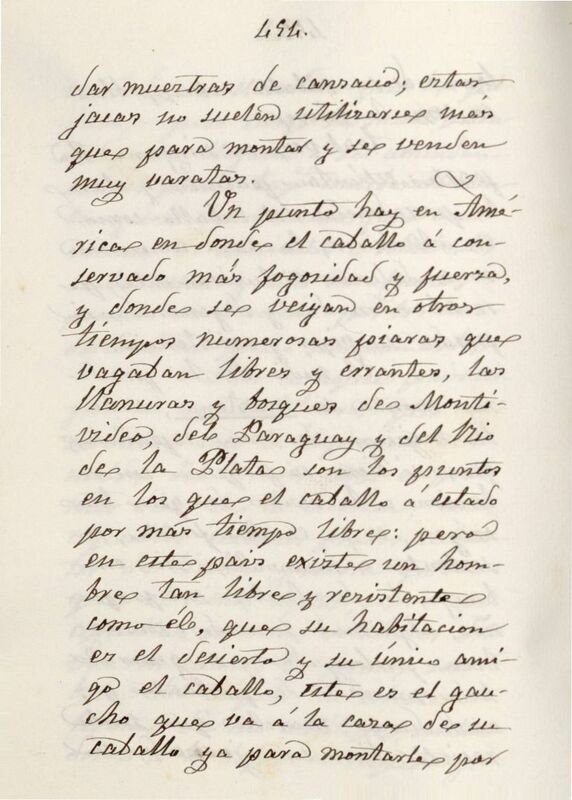 454.
dar muestras de cansacio; estas
jacas no suelen utilizarse más
que para montar y se venden
muy varatas.
Un punto hay en Amé-
rica en donde el caballo á con-
servado más fogosidad y fuerza,
y donde se veiyan en otros
tiempos numerosas piaras que
vagaban libres y errantes, las
llanuras y bosques de Monti-
video, del Paraguay y del Rio
de la Plata son los puntos
en los que el caballo á estado
por más tiempo libre: pero
en este pais existe un hom-
bre tan libre y resistente
como él, que su habitacion
es el desierto y su único ami-
go el caballo, este es el gau-
cho que va á la caza de su
caballo ya para montarle por